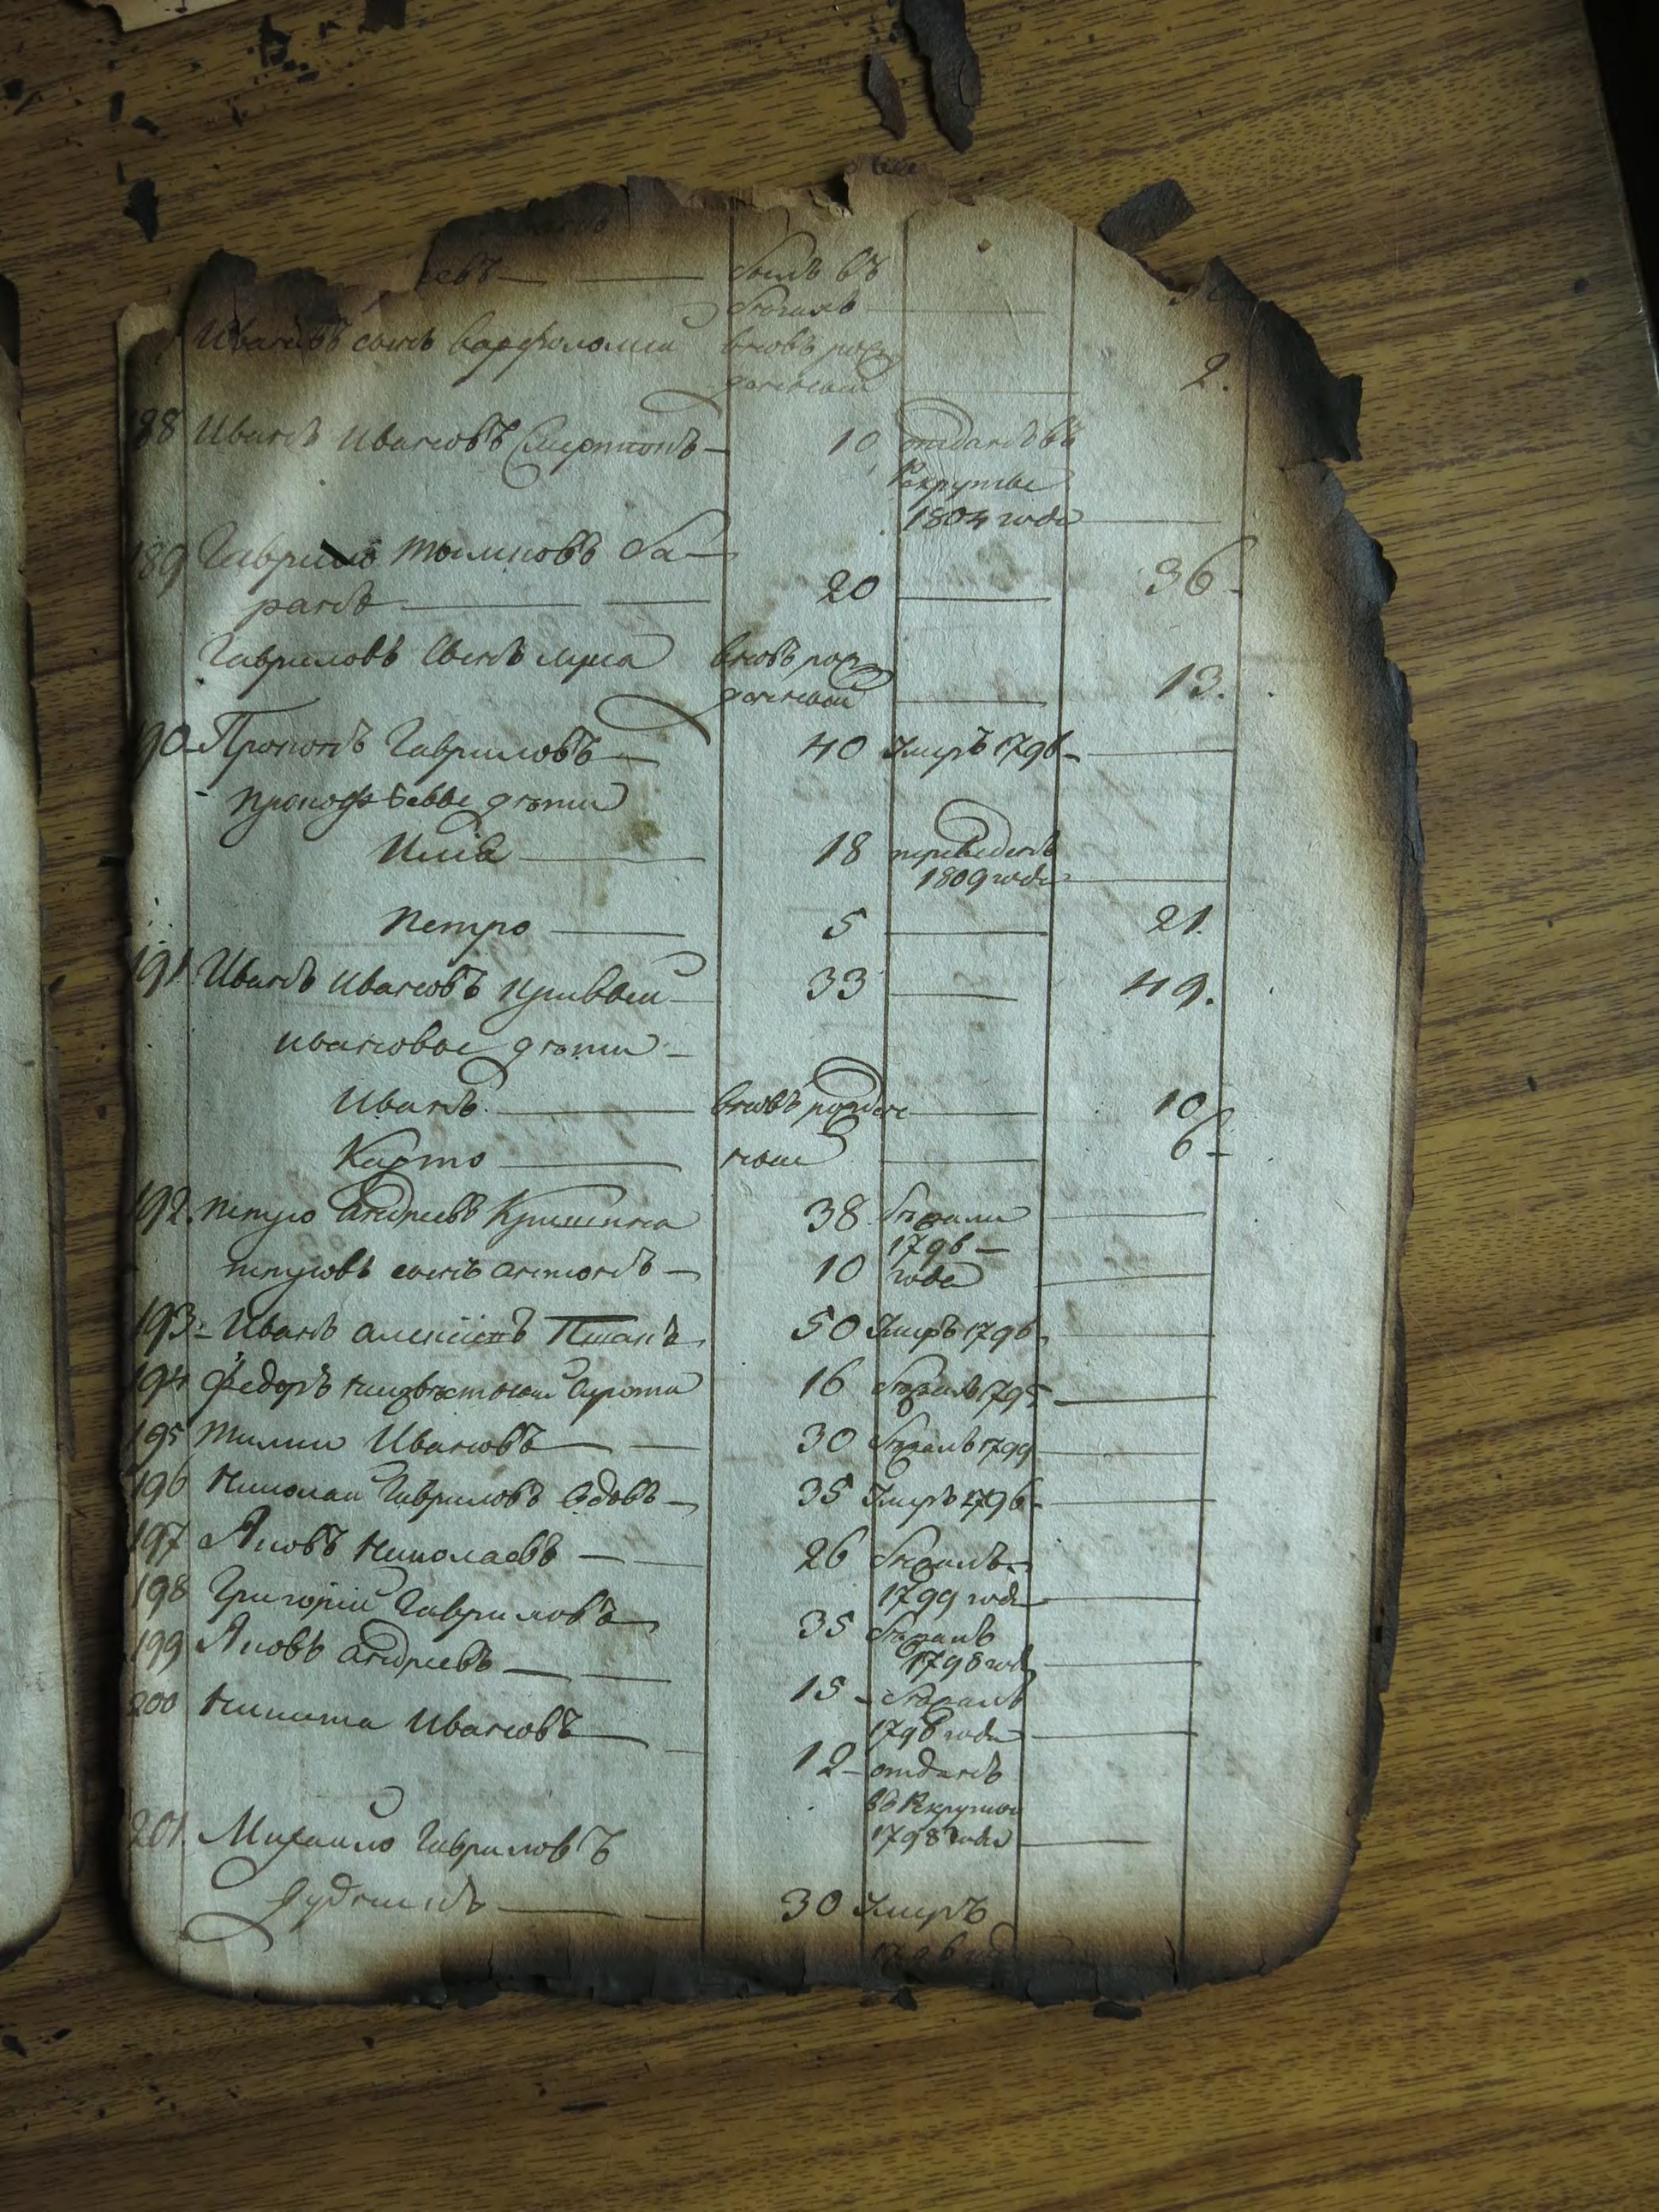 евъ былъ въ
бегахъ
Ивановъ сынъ варфоломей вновь рож
денный 2.
188 Иванъ Ивановъ 10 отданъ въ
Рекруты
1804 года
189 Гаврило Ба
ранъ 20 36
Гавриловъ сынъ лука вновь рож
денный 13.
190 Прокопъ Гавриловъ 40 Умръ 1796
прокофьевы дети
Илiя 18 переведенъ
1809 года
петро 5 21.
191 Иванъ Ивановъ кривый 33 49.
ивановы дети
Иванъ вновь рожден 10
Карпо ные 6
192. петро андреевъ 38 бежали
1796
петровъ сынъ антонъ 10 года
193 Иванъ алексеевъ 50 Умръ 1796
194 Федоръ неизвестный сирота 16 бежалъ 1795
195 Ивановъ 30 бежалъ 1799
196 Николай Гавриловъ вдовъ 35 Умръ 1796
197 Яковъ Николаевъ 26 бежалъ
1799 года
198 Григорiй Гавриловъ 35 бежалъ
1798 года
199 Яковъ андреевъ 15 бежалъ
1796 года
200 Никита Ивановъ 12 отданъ
въ Рекруты
1798 года
201. Михайло Гавриловъ
30 Умръ
1796 года